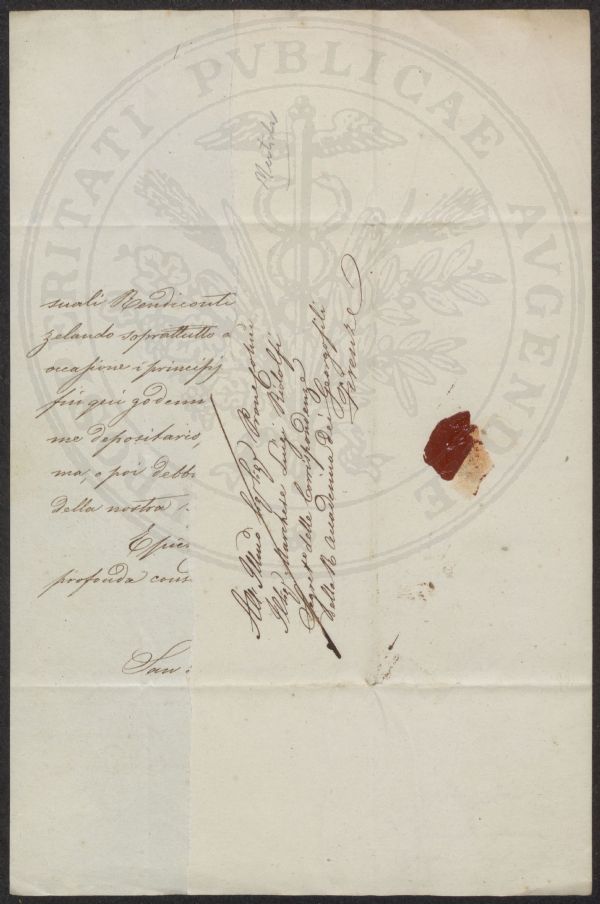 PROSPERITATI PVBLICAE AVGENDAE
suali Rendiconti
zelando soprattutto a
occasione i principj
fin qui godemm
me depositario,
ma, e poi debb
della nostra
profonda cons
San
All' Illmo Sig. Sig. Prone Colmo
Il Sig. Marchese Luigi Ridolfi
Segreto delle Corrispondenze
della R. Accademia dei Georgofili
Firenze